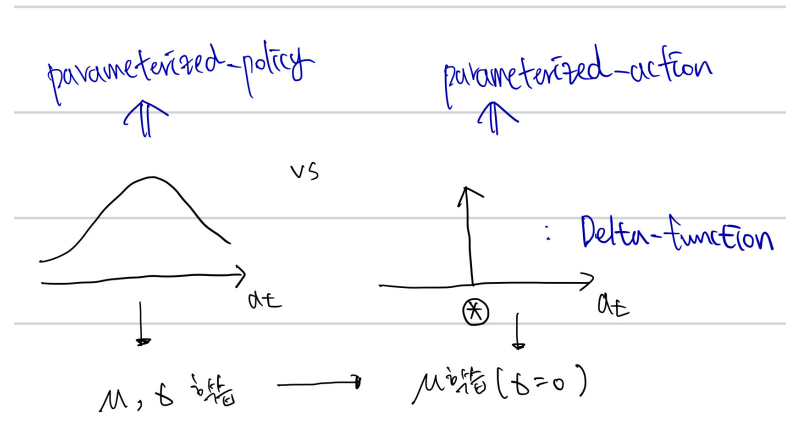 parameterized-policy parameterized-action
vs
: Delta-function
at at
*
μ, σ 학습 → μ학습 (σ=0)